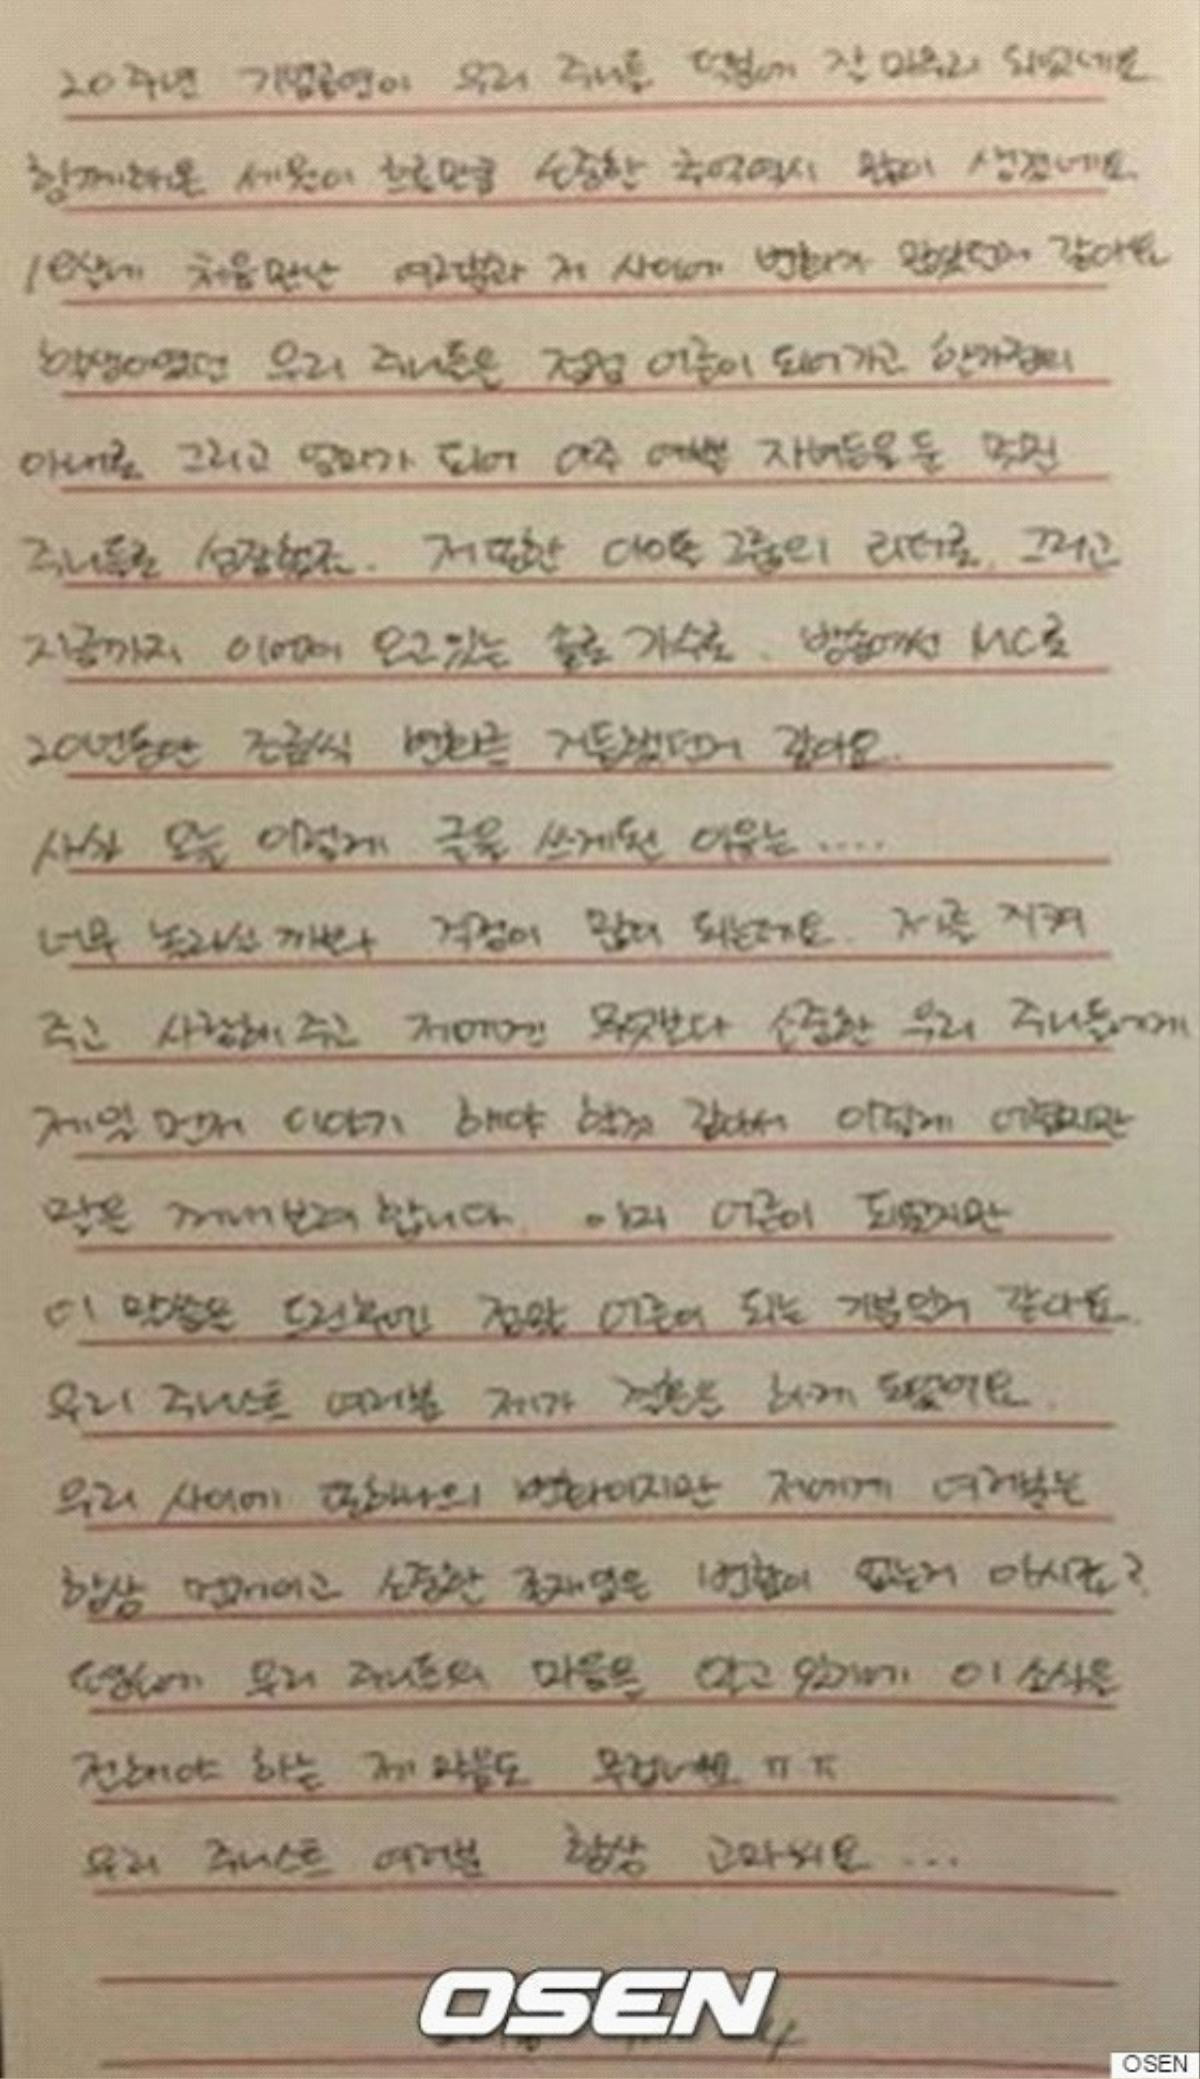 20주년 기념공연이 우리 주니들 덕분에 잘 마무리 되었네요
함께해온 세월이 흐른만큼 소중한 추억역시 많이 생겼네요.
18살에 처음만난 여러분과 저 사이에 변화가 많았던거 같아요
학생이였던 우리 주니들은 점점 어른이 되어가고 한가정의
아내로 그리고 엄마가 되어 아주 예쁜 자녀들을둔 멋진
주니들로 성장했죠. 저 또한 아이돌 그룹의 리더로, 그리고
지금까지 이어져 오고있는 솔로 가수로, 방송에선 MC로
20년동안 조금씩 변화를 거듭했던거 같아요.
사실 오늘 이렇게 글을 쓰게된 이유는....
너무 놀라실까봐 걱정이 많이 되는데요. 저를 지켜
주고 사랑해주고 저에겐 무엇보다 소중한 우리 주니들에게
제일먼저 이야기 해야 할것 같아서 이렇게 어렵지만
말을 꺼내보려합니다. 이미 어른이 되었지만
이 말씀을 드린후엔 정말 어른이 되는 기분인거 같아요.
우리 주니스트 여러분 제가 결혼을 하게 되었어요.
우리 사이에 또하나의 변화이지만 저에게 여러분은
항상 먼저이고 소중한 존재임은 변함이 없는거 아시죠?
누구보다 우리 주니들의 마음을 알고 있기에 이 소식을
전해야 하는 제 마음도 무겁네요 ㅠㅠ
우리 주니스트 여러분 항상 고마워요...
OSEN
OSEN